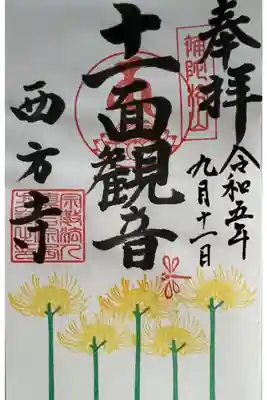 奉拝
令和五年
九月十一日
十一面観音
西方寺